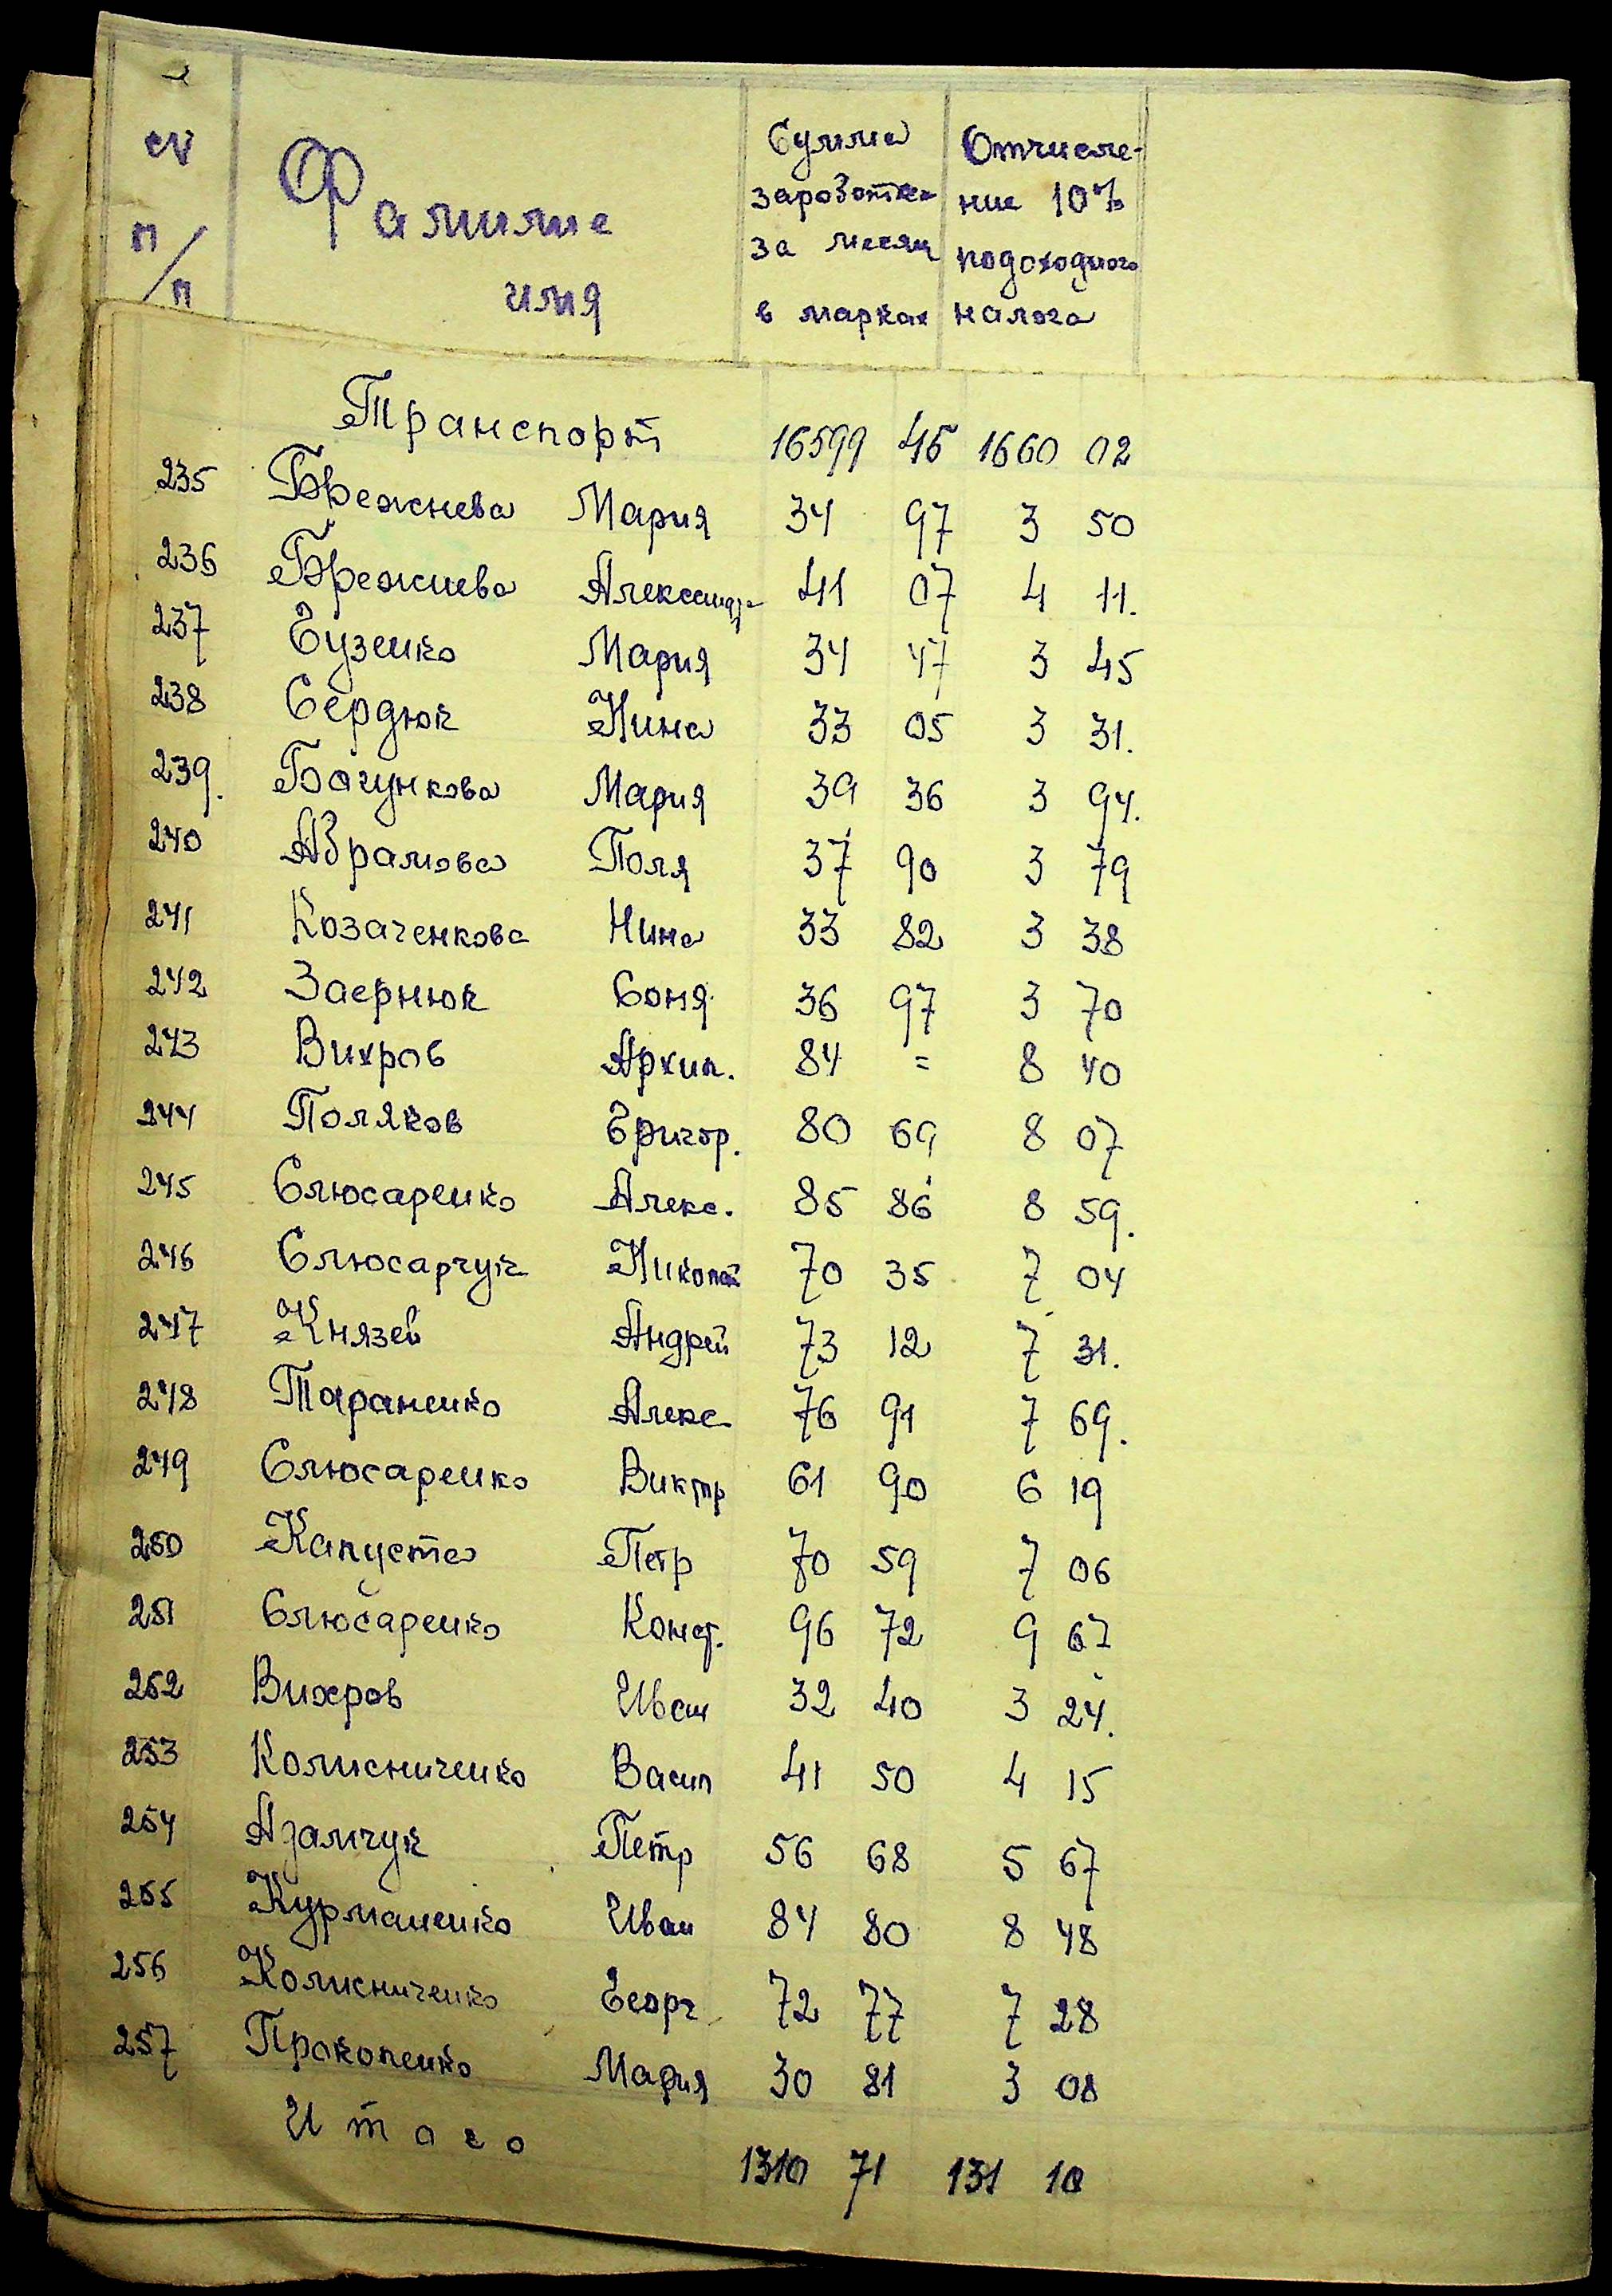 № п/п Фамилие имя Сумма заработка за месяц в марках Отчисление 10% подоходного налога
Транспорт 16599 45 1660 02
235 Брежнева Мария 34 97 3 50
236 Брежнева Александра 41 07 4 11.
237 Гузенко Мария 34 47 3 45
238 Сердюк Нина 33 05 3 31.
239. Багункова Мария 39 36 3 94.
240 Абрамова Поля 37 90 3 79
241 Козаченкова Нина 33 82 3 38
242 Заернюк Соня 36 97 3 70
243 Вихров Архип. 84 = 8 40
244 Поляков Григор. 80 69 8 07
245 Слюсаренко Алекс. 85 86 8 59.
246 Слюсарчук Николай 70 35 7 04
247 Князев Андрей 73 12 7 31.
248 Тараненко Алекс 76 91 7 69.
249 Слюсаренко Виктор 61 90 6 19
250 Капуста Петр 70 59 7 06
251 Слюсаренко Конст. 96 72 9 67
252 Вихров Иван 32 40 3 24.
253 Колисниченко Васил 41 50 4 15
254 Адамчук Петр 56 68 5 67
255 Курманенко Иван 84 80 8 48
256 Колисниченко Георг 72 77 7 28
257 Прокопенко Мария 30 81 3 08
Итого 1310 71 131 10